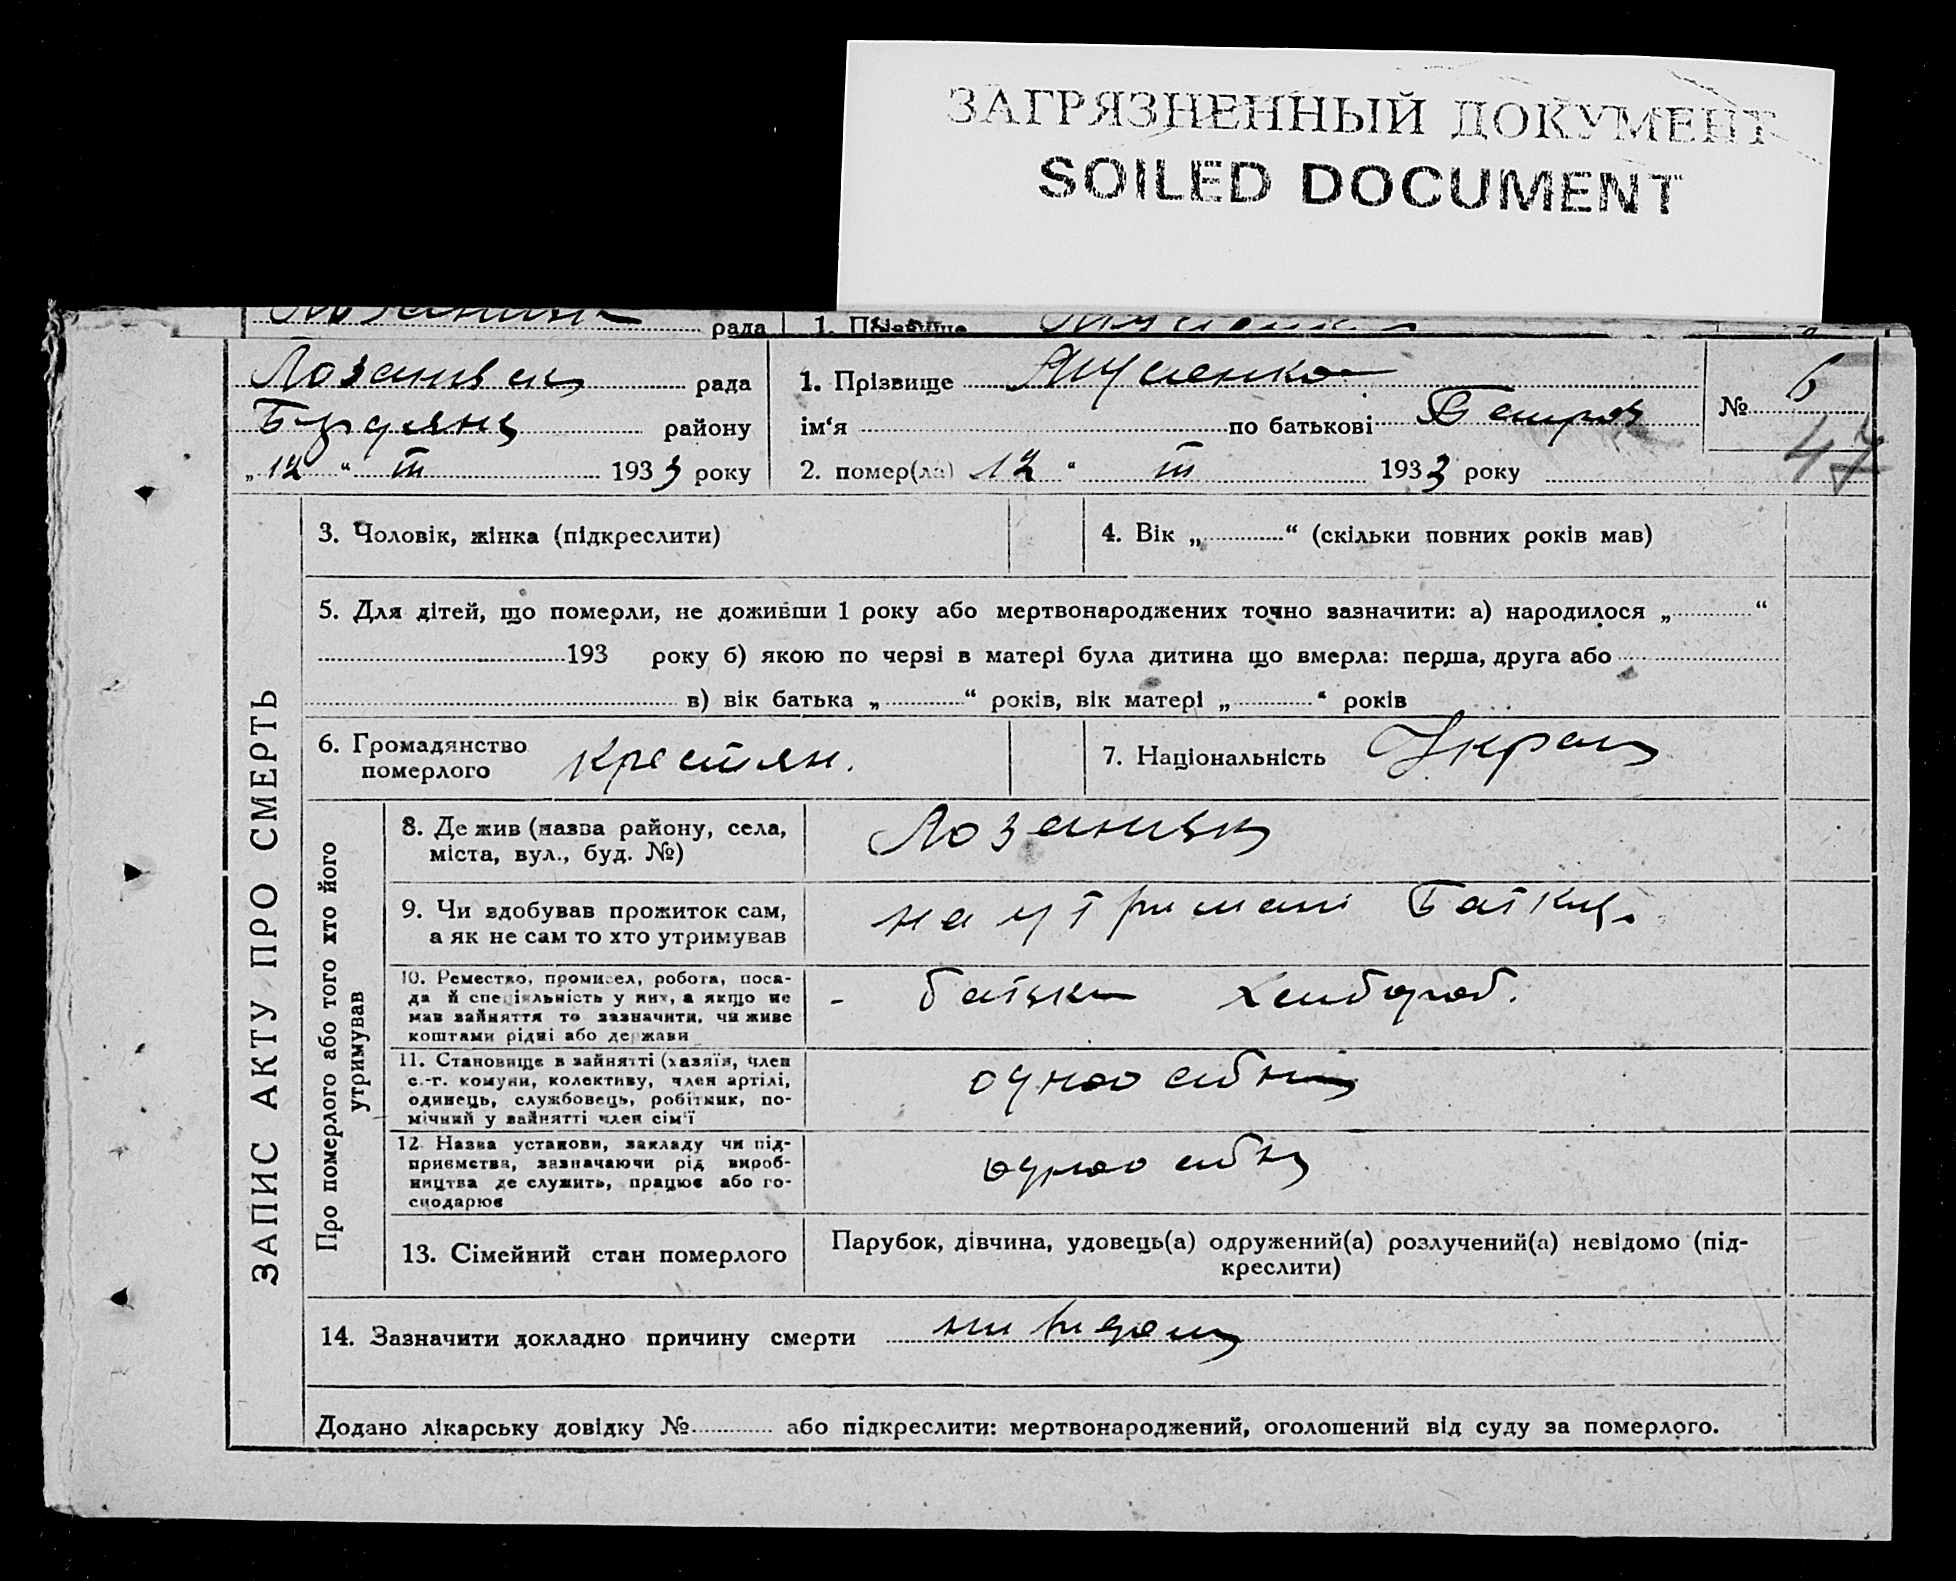 ЗАГРЯЗНЕННЫЙ ДОКУМЕНТ
SOILED DOCUMENT
рада 1. Прізвище
рада
1. Прізвище
№ 6
району
ім‘я по батькові Петров
47
„ 12 “ III 1933 року
2. помер(ла) 12 “ III 1933 року
ЗАПИС АКТУ ПРО СМЕРТЬ
3. Чоловік, жінка (підкреслити)
4. Вік „ “ (скільки повних років мав)
5. Для дітей, що померли, не доживши 1 року або мертвонароджених точно зазначити: а) народилося „ “
193 року б) якою по черзі в матері була дитина що вмерла: перша, друга або
в) вік батька „ “ років, вік матері „ “ років
6. Громадянство
померлого
крестян.
7. Національність Украї
Про померлого або того хто його
утримував
8. Де жив (назва району, села,
міста, вул., буд. №)
9. Чи здобував прожиток сам,
а як не сам то хто утримував
на утримані батьків
10. Ремество, промисел, робота, поса-
да й спеціяльність у них, а якщо не
мав зайняття то зазначити, чи живе
коштами рідні або держави
- батьки хлибороб.
11. Становище в зайнятті (хазяїн, член
с.-г. комуни, колективу, член артілі,
одинець, службовець, робітник, по-
мічний у зайнятті член сім‘ї
12. Назва установи, закладу чи під-
приємства, зазначаючи рід вироб-
ництва де служить, працює або го-
сподарює
13. Сімейний стан померлого
Парубок, дівчина, удовець(а) одружений(а) розлучений(а) невідомо (під-
креслити)
14. Зазначити докладно причину смерти
Додано лікарську довідку № або підкреслити: мертвонароджений, оголошений від суду за померлого.